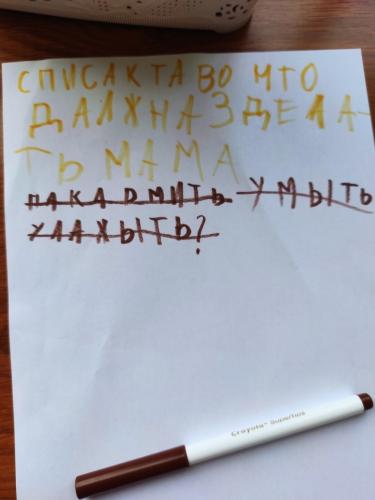 СПИСАК ТАВО ЧТО
ДАЛЖНА ЗДЕЛА-
ТЬ МАМА
ПАКАРМИТЬ УМЫТЬ
УЛАЖЫТЬ?
Crayola